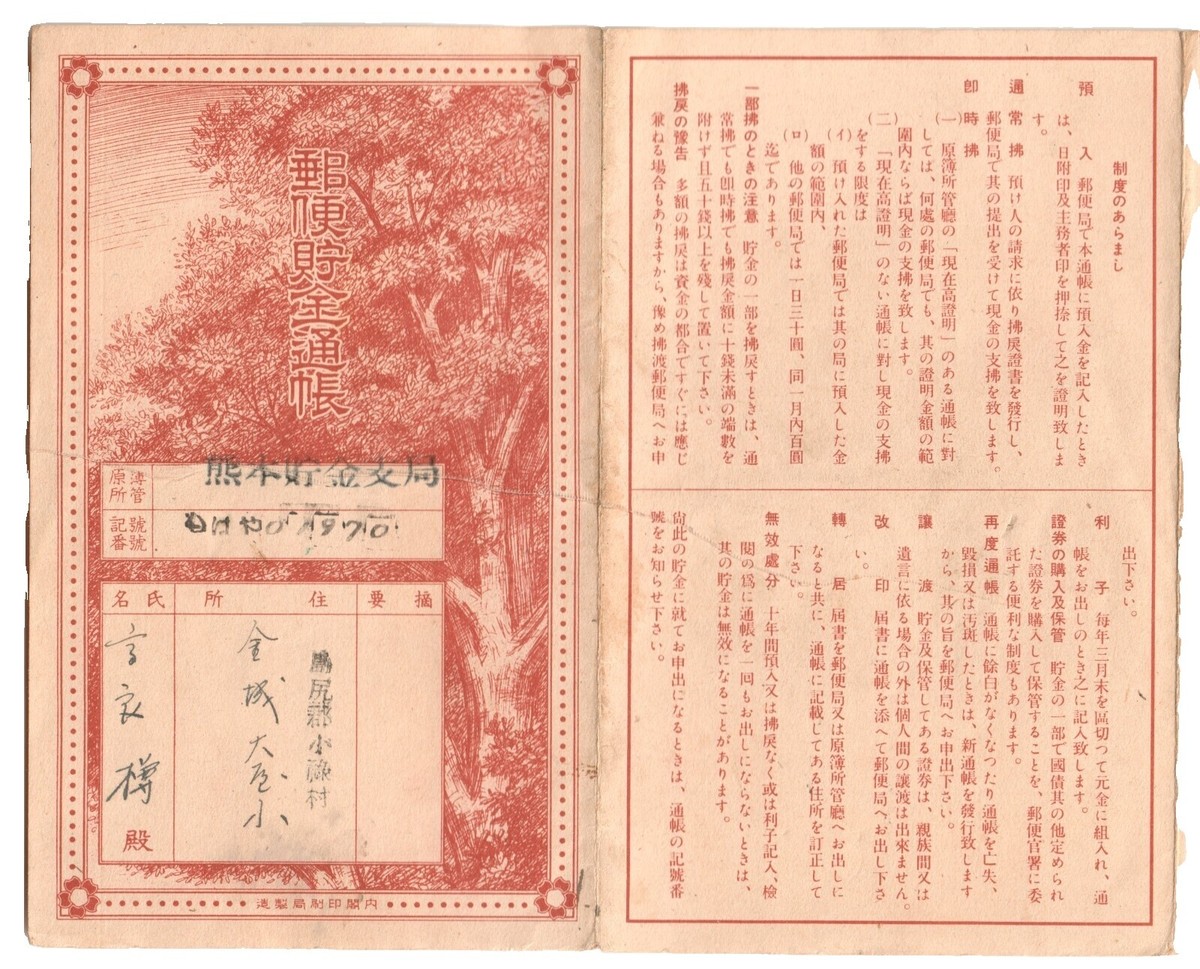 郵便貯金通帳
原簿所管
熊本貯金支局
記號番號
もはや01970
氏名
住所
摘要
島尻郡小祿村
金城
大屋小
樽
殿
內閣印刷局製造
制度のあらまし
預入 郵便局で本通帳に預入金を記入したとき
は、日附印及主務者印を押捺して之を證明致しま
す。
通常拂 預け人の請求に依り拂戾證書を發行し、
郵便局で其の提出を受けて現金の支拂を致します。
卽時拂
(一) 原簿所管廳の「現在高證明」のある通帳に對
しては、何處の郵便局でも、其の證明金額の範
圍內ならば現金の支拂を致します。
(二) 「現在高證明」のない通帳に對し現金の支拂
をする限度は
(イ) 預け入れた郵便局では其の局に預入した金
額の範圍內、
(ロ) 他の郵便局では一日三十圓、同一月內百圓
迄であります。
一部拂のときの注意 貯金の一部を拂戾すときは、通
常拂でも卽時拂でも拂戾金額に十錢未滿の端數を
附けず且五十錢以上を殘して置いて下さい。
拂戾の豫告 多額の拂戾は資金の都合ですぐには應じ
兼ねる場合もありますから、豫め拂渡郵便局へお申
出下さい。
利子 每年三月末を區切つて元金に組入れ、通
帳をお出しのとき之に記入致します。
證券の購入及保管 貯金の一部で國債其の他定められ
た證券を購入して保管することを、郵便官署に委
託する便利な制度もあります。
再度通帳 通帳に餘白がなくなつたり通帳を亡失、
毀損又は汚斑したときは、新通帳を發行致します
から、其の旨を郵便局へお申出下さい。
讓渡 貯金及保管してある證券は、親族間又は
遺言に依る場合の外は個人間の讓渡は出來ません。
改印 屆書に通帳を添へて郵便局へお出し下さ
い。
轉居 屆書を郵便局又は原簿所管廳へお出しに
なると共に、通帳に記載してある住所を訂正して
下さい。
無效處分 十年間預入又は拂戾なく或は利子記入、檢
閱の爲に通帳を一回もお出しにならないときは、
其の貯金は無效になることがあります。
尙此の貯金に就てお申出になるときは、通帳の記號番
號をお知らせ下さい。